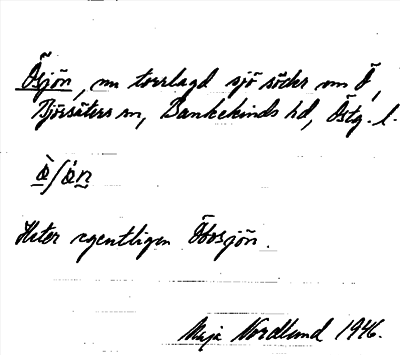 Ösjön, nu torrlagd sjö söder om Ö,
Björsäters sn, Bankekinds hd, Östg. l.
ö̀ʃön
Heter egentligen Öbosjön.
Maja Nordlund 1946.